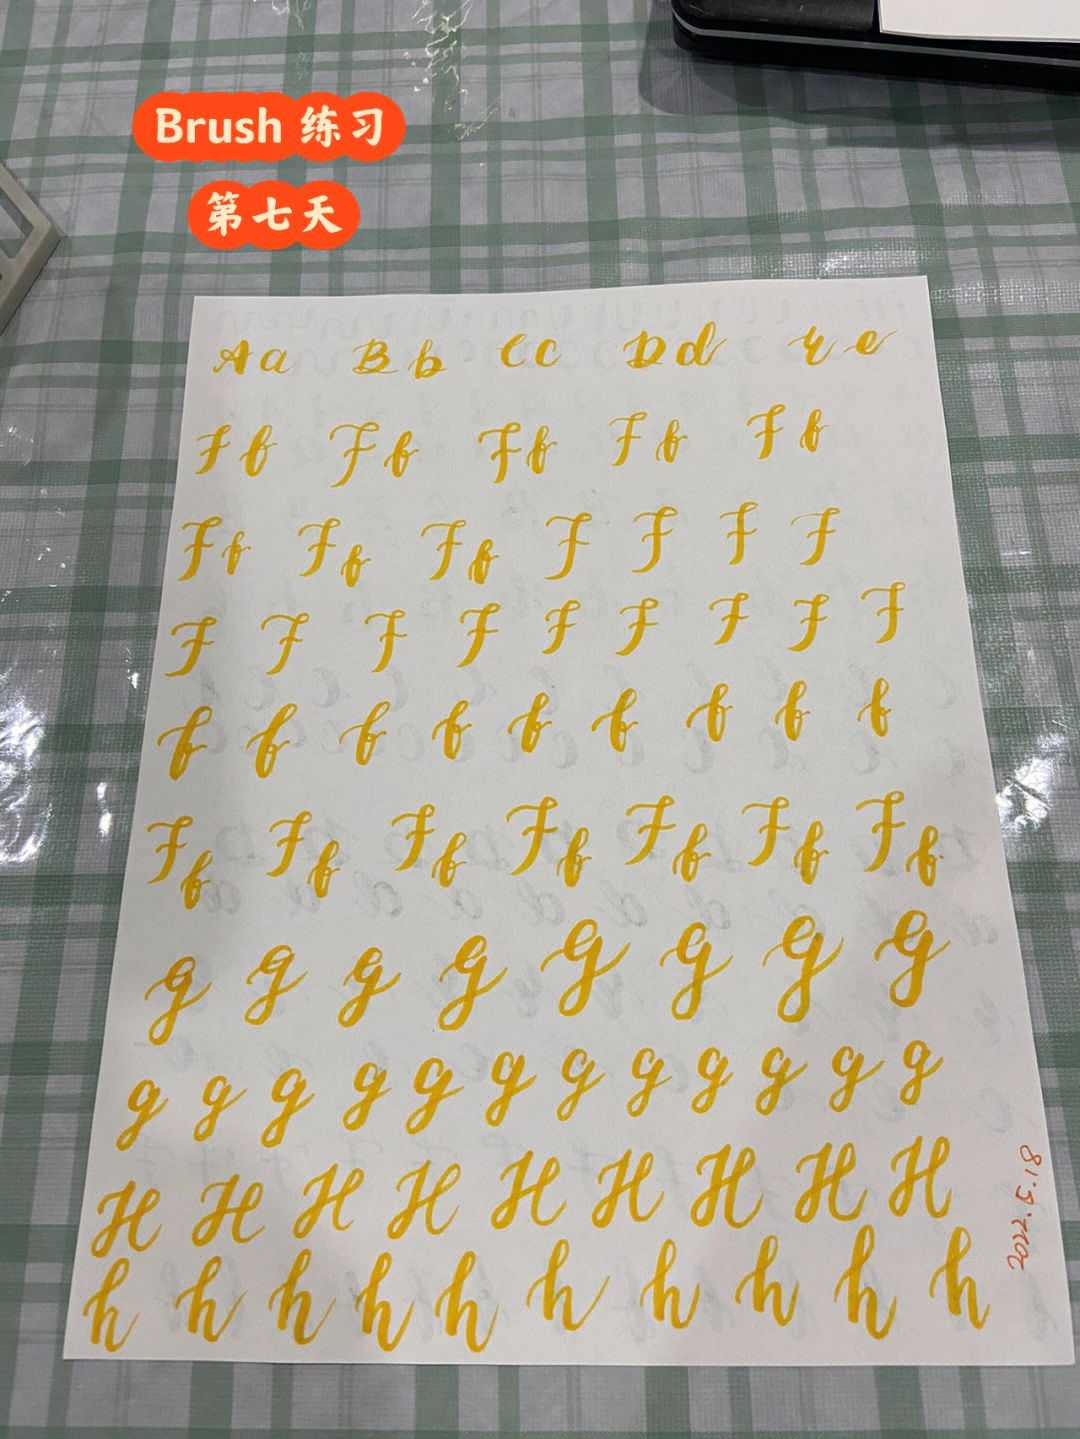 Brush 练习
第七天
Aa Bb Cc Dd Ee
Ff Ff Ff Ff Ff
Ff Ff Ff F F F F
F F F F F F F F F
f f f f f f f f f
Ff Ff Ff Ff Ff Ff Ff
G G G G G G G G
g g g g g g g g g g g g
H H H H H H H H H
h h h h h h h h h h
2022.5.18